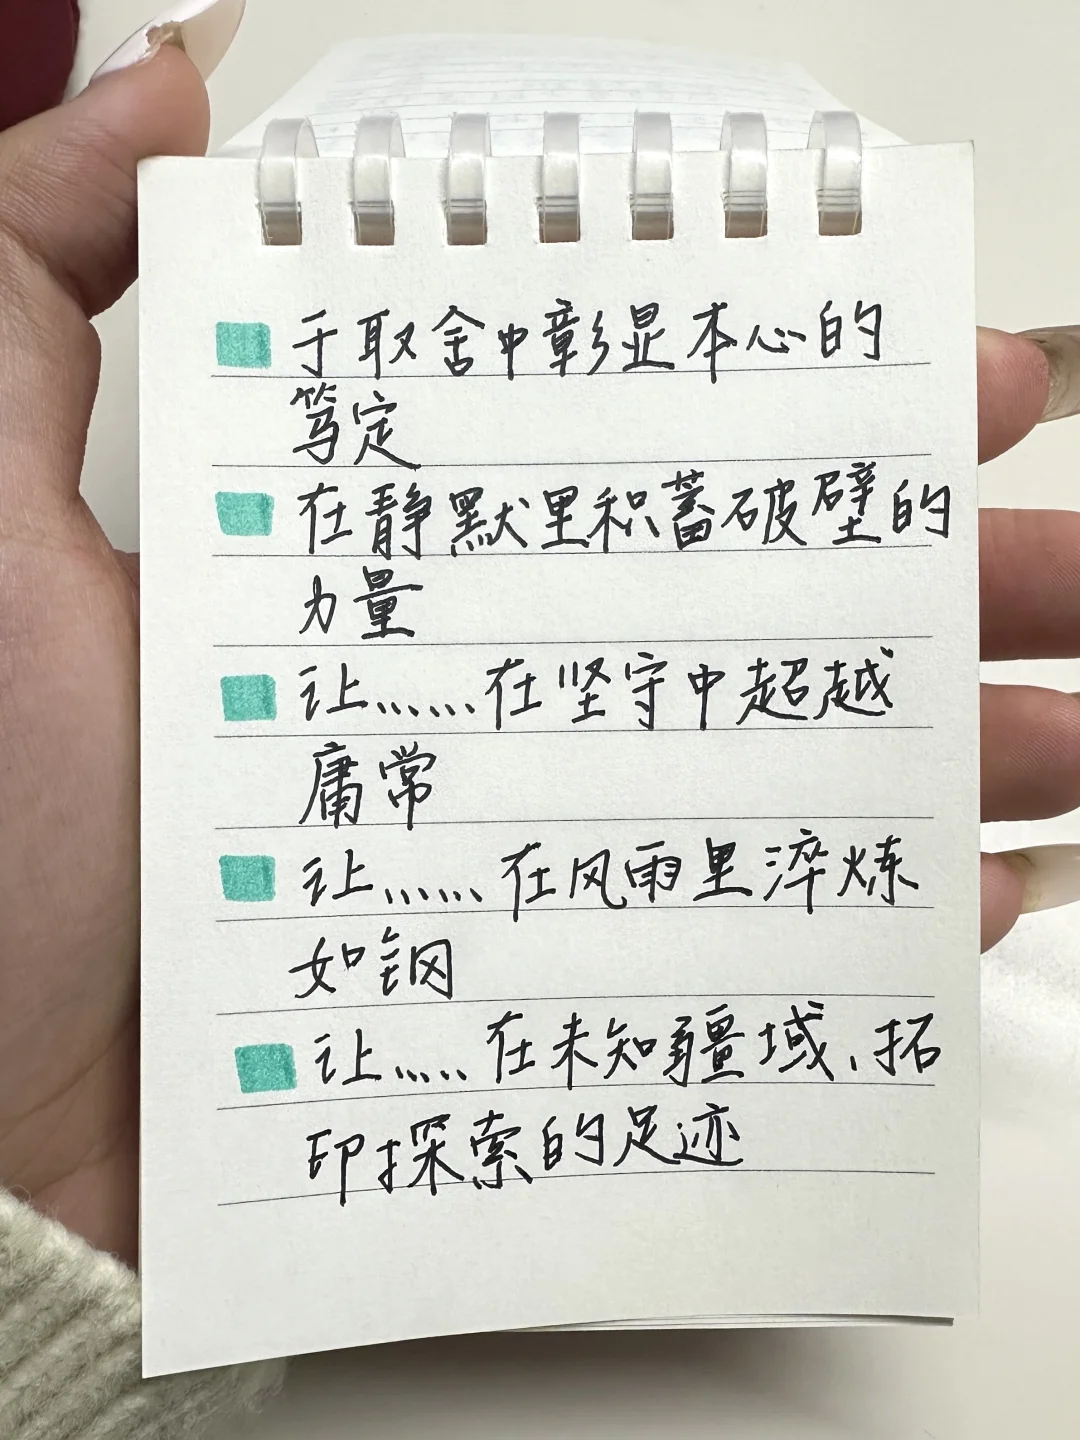 于取舍中彰显本心的
笃定
在静默里积蓄破壁的
力量
让……在坚守中超越
庸常
让……在风雨里淬炼
如钢
让……在未知疆域、拓
印探索的足迹